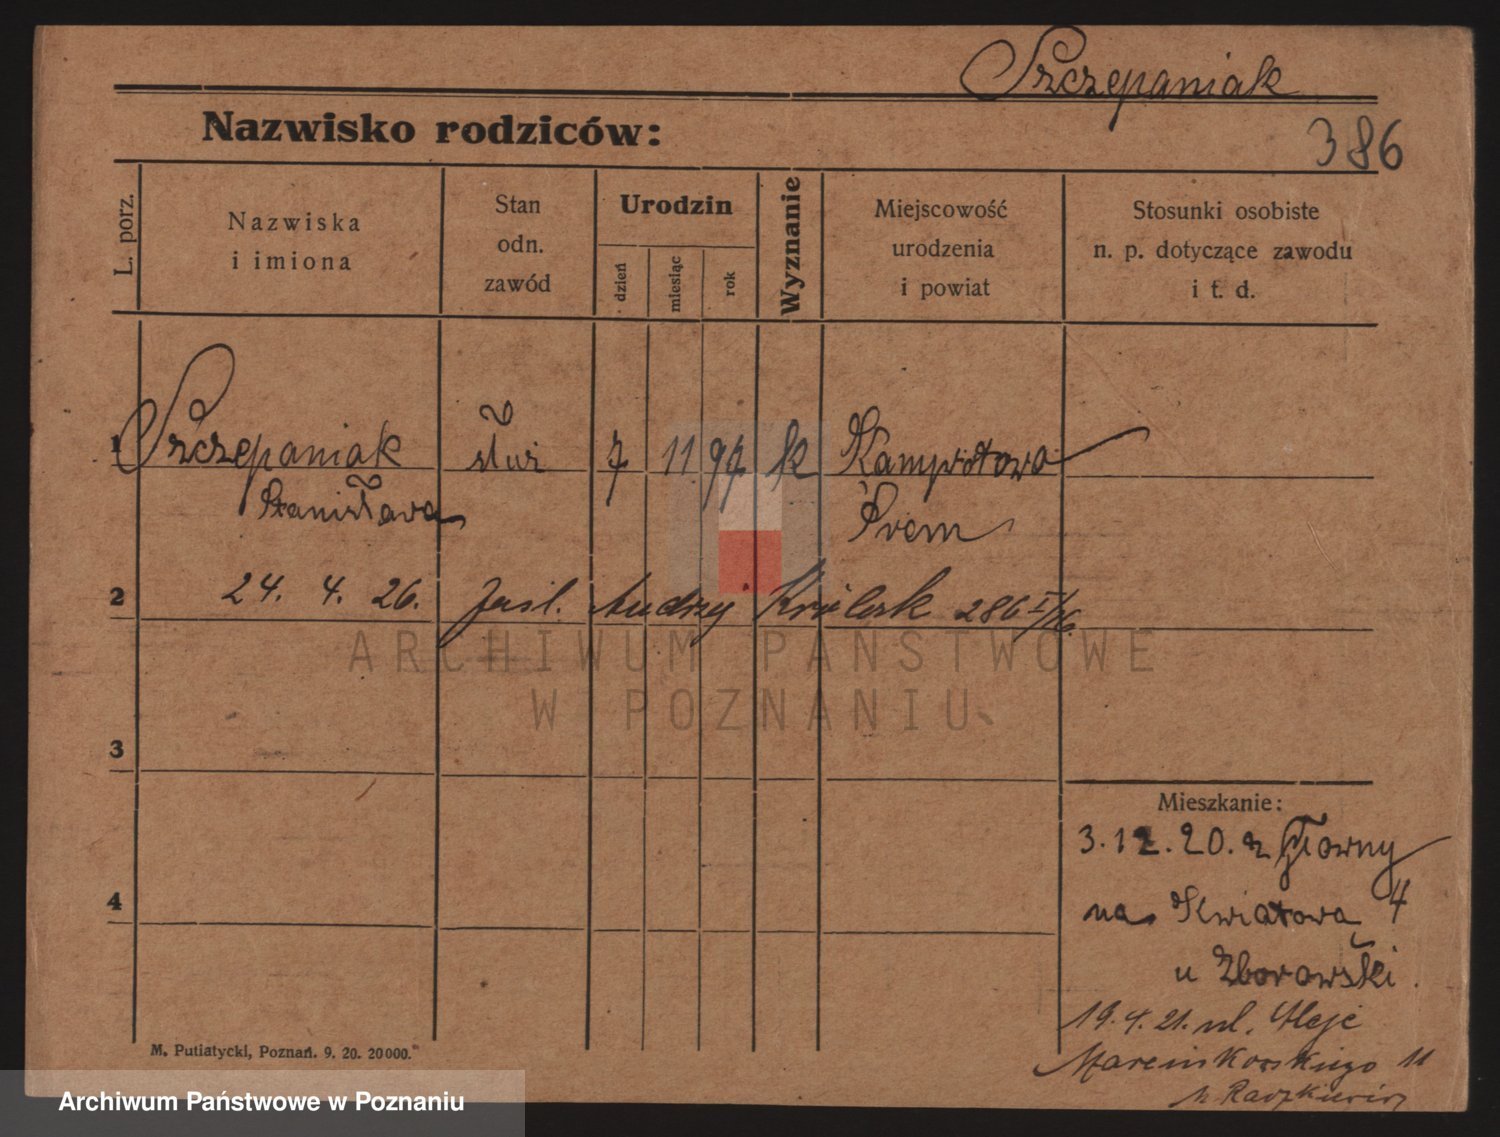 Szczepaniak
Nazwisko rodziców:
386
L. porz.
Nazwiska
i imiona
Stan
odn.
zawód
Urodzin
dzień
miesiąc
rok
Wyznanie
Miejscowość
urodzenia
i powiat
Stosunki osobiste
n. p. dotyczące zawodu
i t. d.
1 Szczepaniak służ 7 11 97 k
Stanisława Śrem
2 24. 4. 26. Andrzej 286
ARCHIWUM PAŃSTWOWE
W POZNANIU
3
Mieszkanie:
3.12.20. z Główny
4
na Kwiatowa 4
u Zborowski.
19.4.21. ul. Aleje
Marcinkowskiego 11
M. Putiatycki, Poznań. 9. 20. 20000.
Archiwum Państwowe w Poznaniu